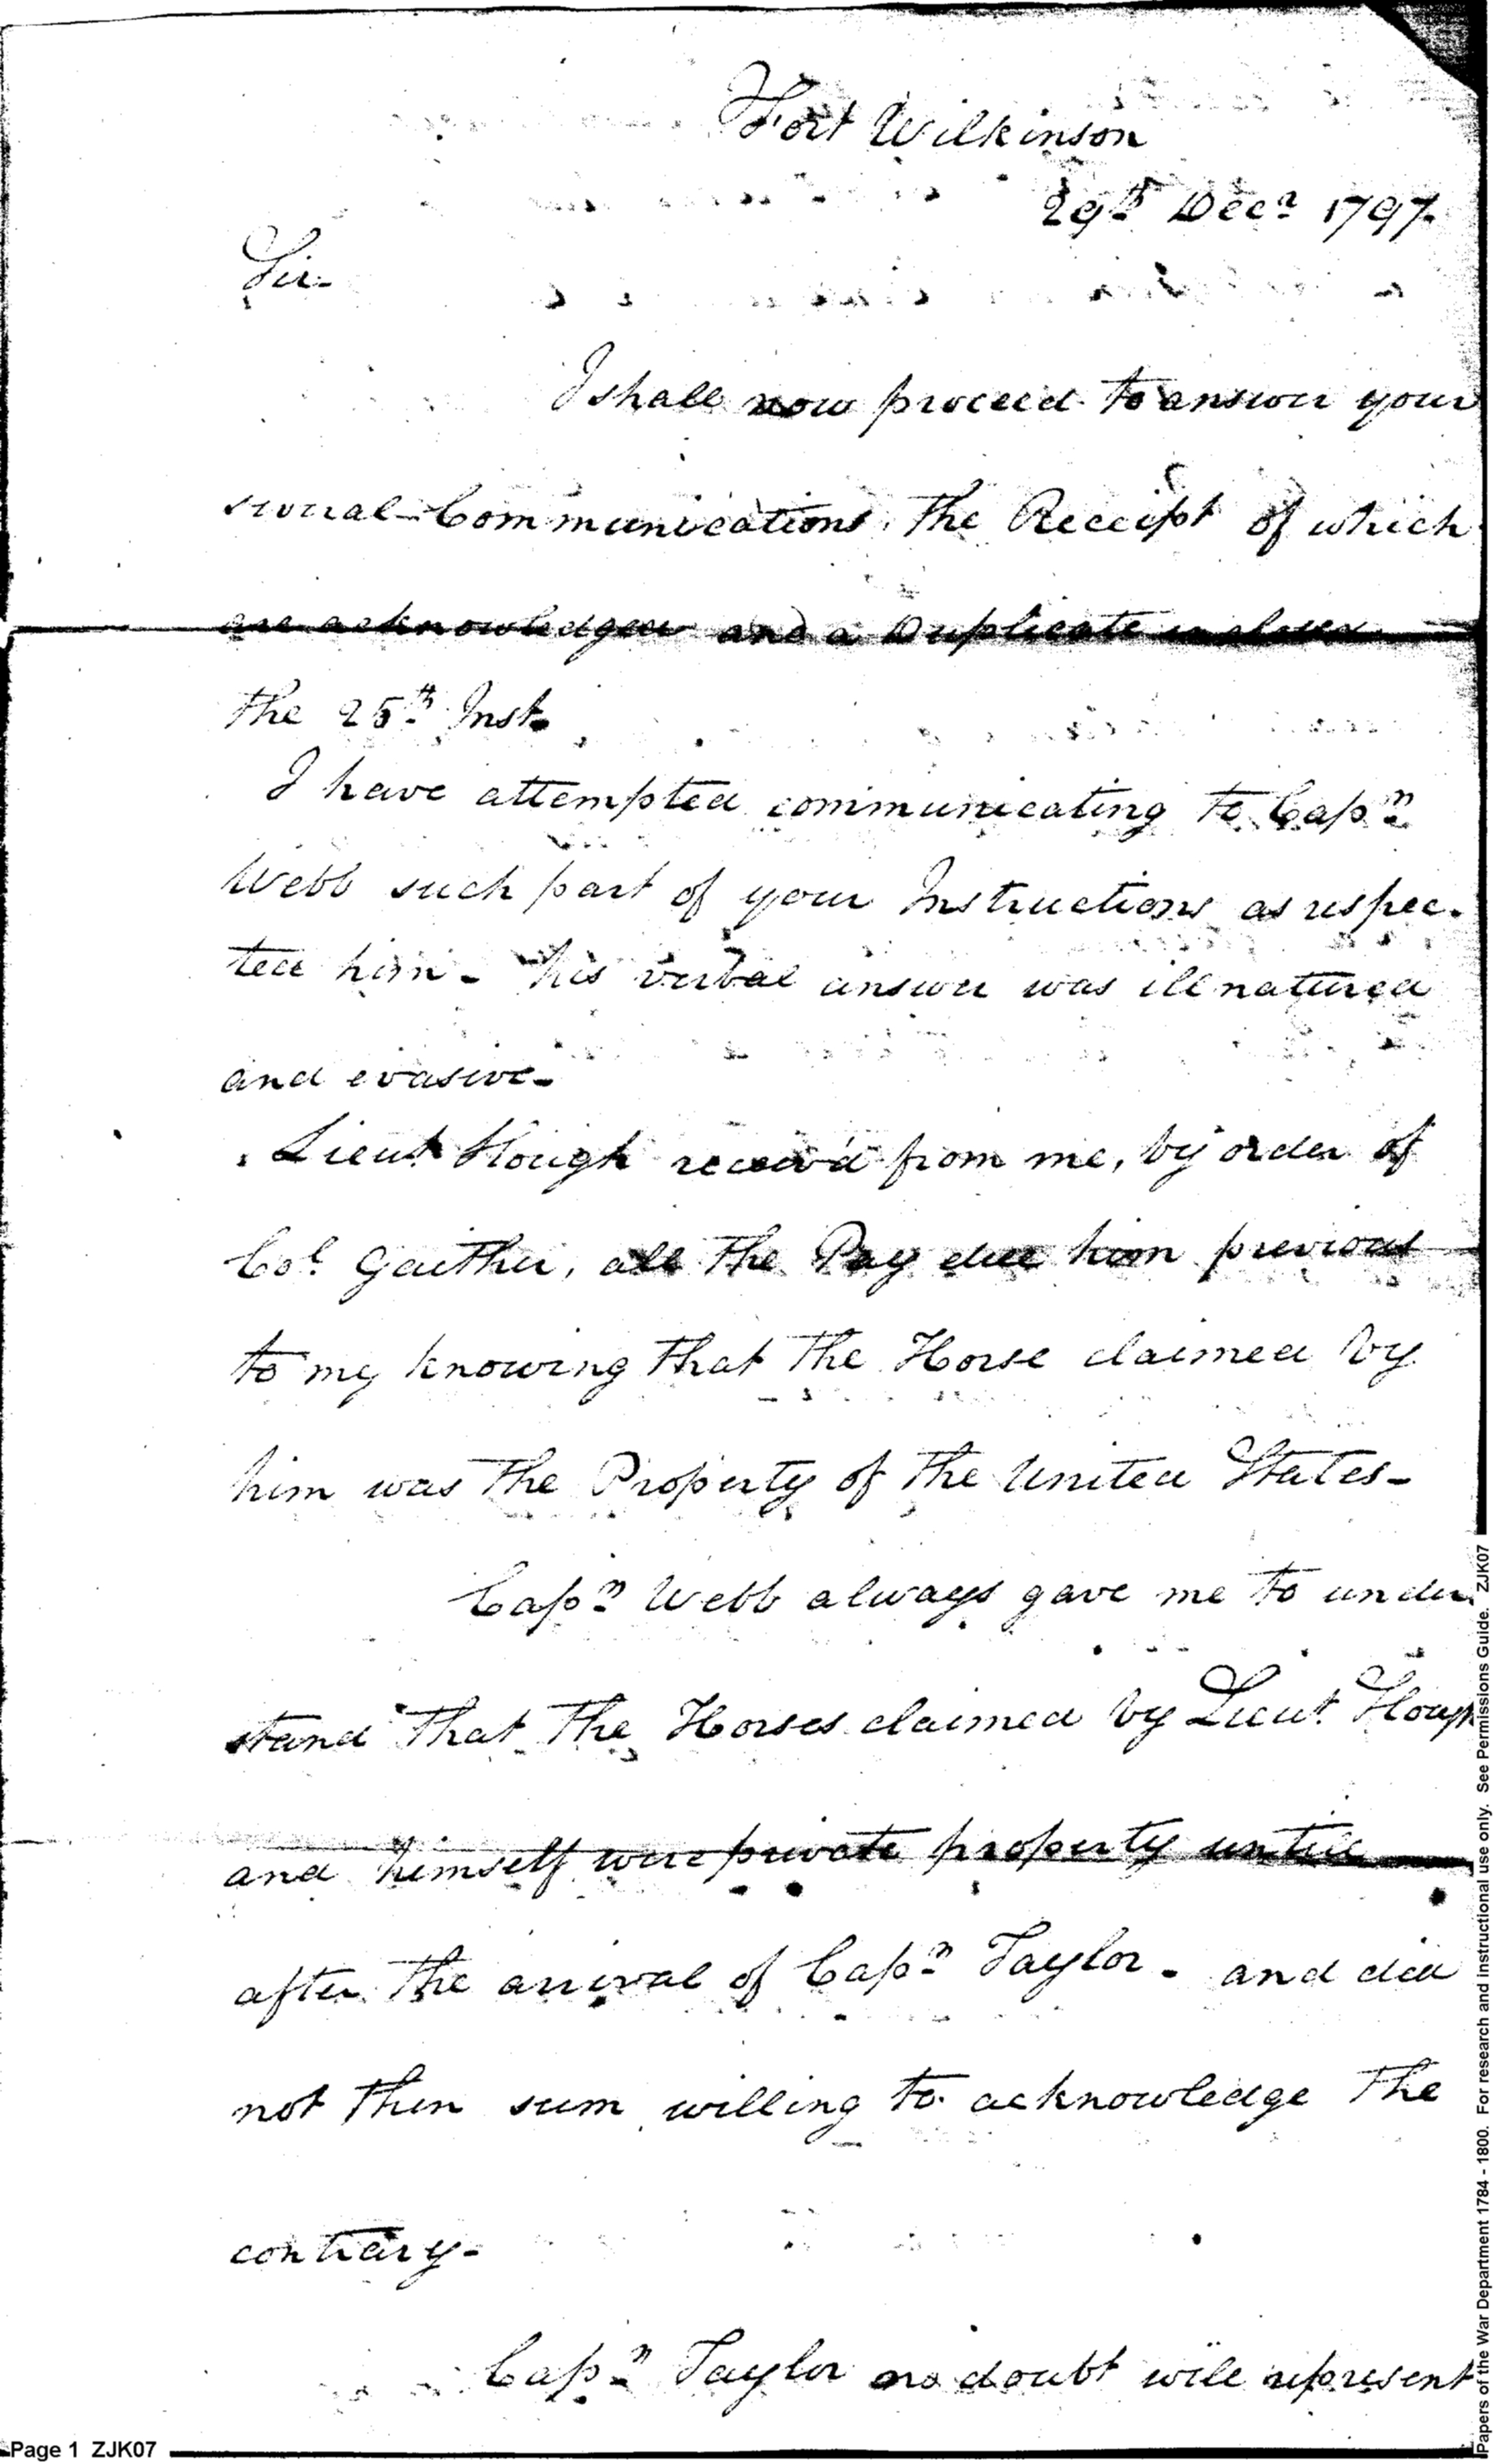 Fort Wilkinson
29th Decr 1797.
Sir-
I shall now proceed to answer your
several Communications, the Receipt of which
are acknowledged and a Duplicate inclosed
the 25th Inst.
I have attempted communicating to Capn
Webb such part of your Instructions as respec-
ted him - his verbal answer was illnatured
and evasive-
Lieut Hough receiv'd from me, by order of
Col. Gaither, all the Pay due him previous
to my knowing that the Horse claimed by
him was the Property of the United States-
Capn Webb always gave me to under
stand that the Horses claimed by Lieut Hough
and himself were private property untill
after the arrival of Capn Taylor - and did
not then seem willing to acknowledge the
contrary-
Capn Taylor no doubt will represent
Page 1 ZJK07
Papers of the War Department 1784 - 1800. For research and instructional use only. See Permissions Guide. ZJK07